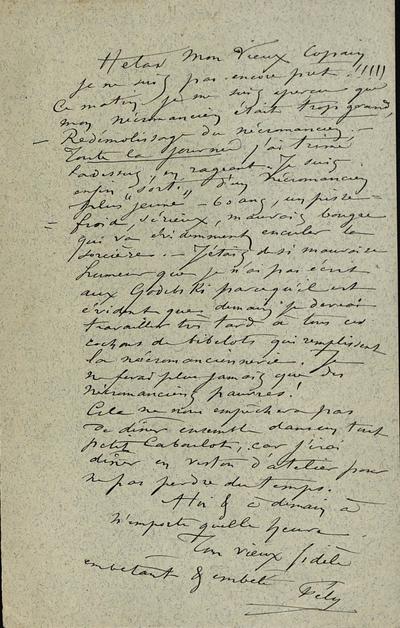 Helas mon Vieux Copain
je ne suis pas encore pret !!!!!
Ce matin je me suis aperçu que
mon nécromancien était trop grand,
Redémolissage du nécromancien. —
Toute la journée j'ai trimé
là dessus, en rageant. Je suis
enfin "sorti" d'un Nécromancien
plus jeune — 60 ans, un pisse-
froid, sérieux, mauvais bougre
qui va évidemment enculer la
sorcière. — J'étais de si mauvaise
humeur que je n'ai pas écrit
aux Godebski parcequ'il est
évident que demain je devrai
travailler très tard à tous ces
cochons de bibelots qui remplissent
la nécromanciennerie. Je
ne ferai plus jamais que des
nécromanciens pauvres!
Cela ne nous empechera pas
de diner ensemble dans un tout
petit Caboulot, car j'irai
diner en veston d'atelier pour
ne pas perdre du temps.
A toi & à demain à
n'importe quelle heure
Ton vieux fidèle
embêtant & embêté
Fély